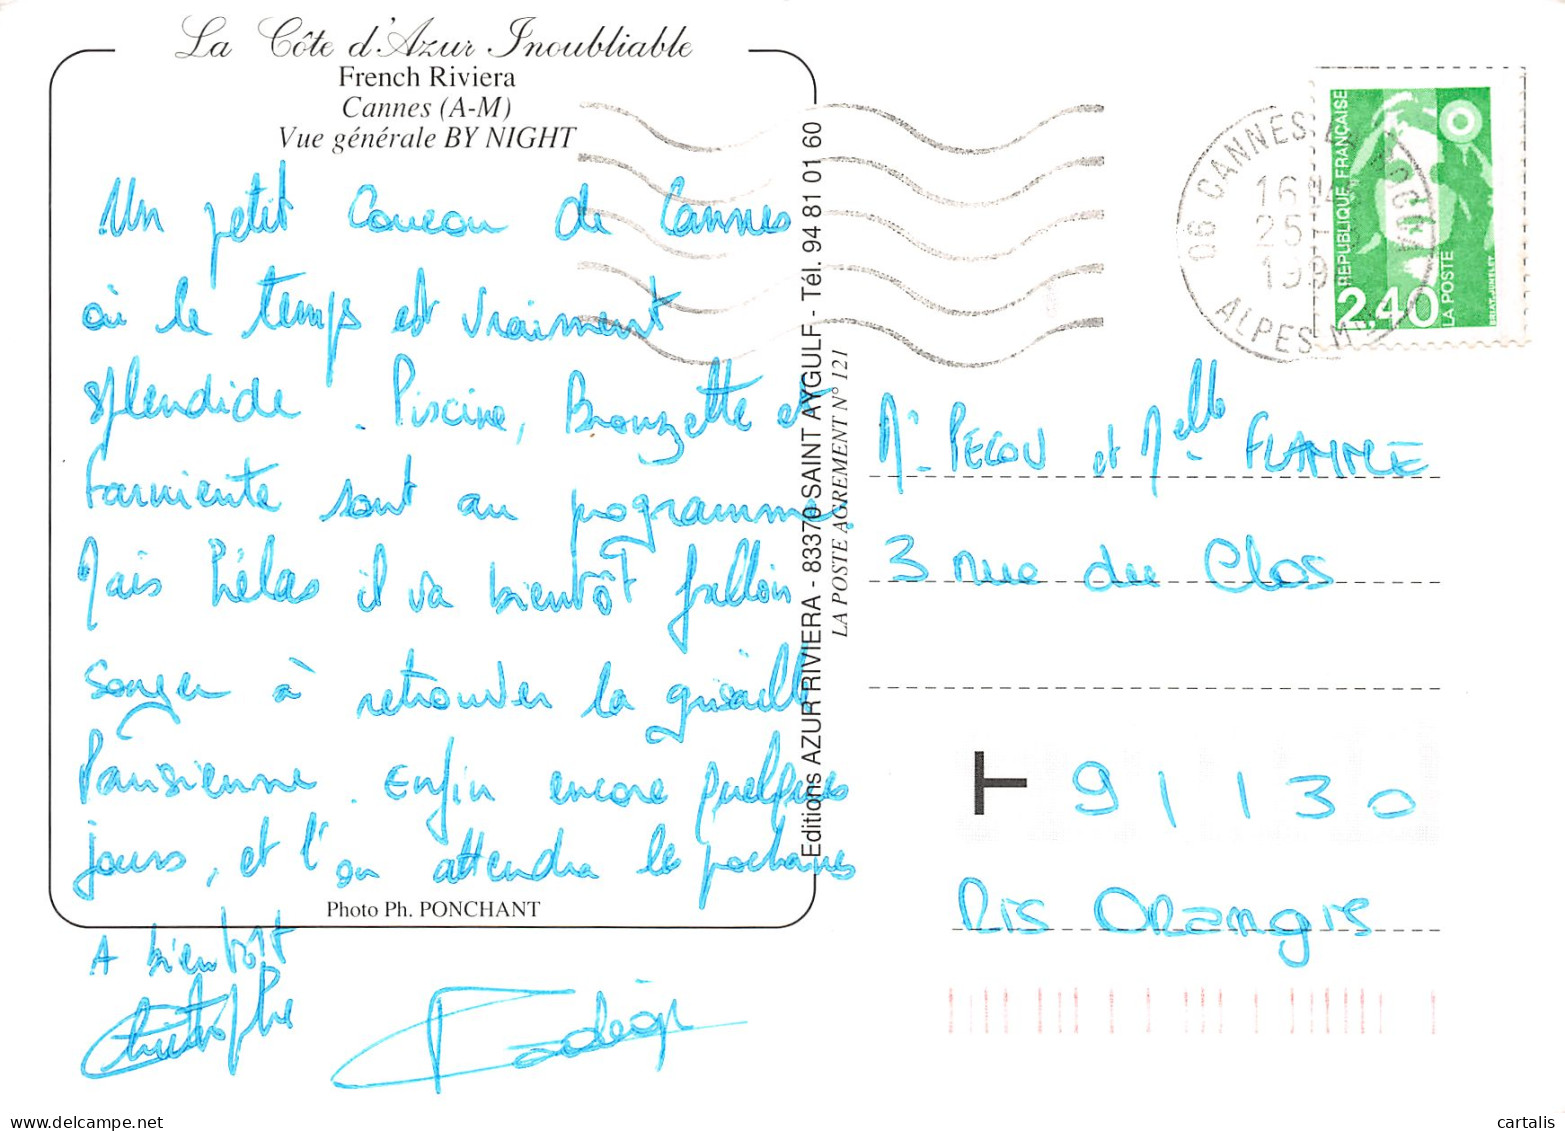 La Côte d'Azur Inoubliable
French Riviera
Cannes (A-M)
Vue générale BY NIGHT
Un petit coucou de Cannes
où le temps est vraiment
splendide. Piscine, Bronzette et
Farniente sont au programme.
Mais hélas il va bientôt falloir
songer à retrouver la grisaille
Parisienne. Enfin encore quelques
jours, et l'on attendra les prochaines
A bientôt
Christophe
Photo Ph. PONCHANT
Editions AZUR RIVIERA - 83370 SAINT AYGULF - Tél. 94 81 01 60
LA POSTE AGREMENT N° 121
06 CANNES
16H
25
199
ALPES M
REPUBLIQUE FRANÇAISE
2,40
LA POSTE
BRIAT-JUMELET
Mr PECOU et Melle FLAMME
3 rue du Clos
T 91130
Ris Orangis
cartalis